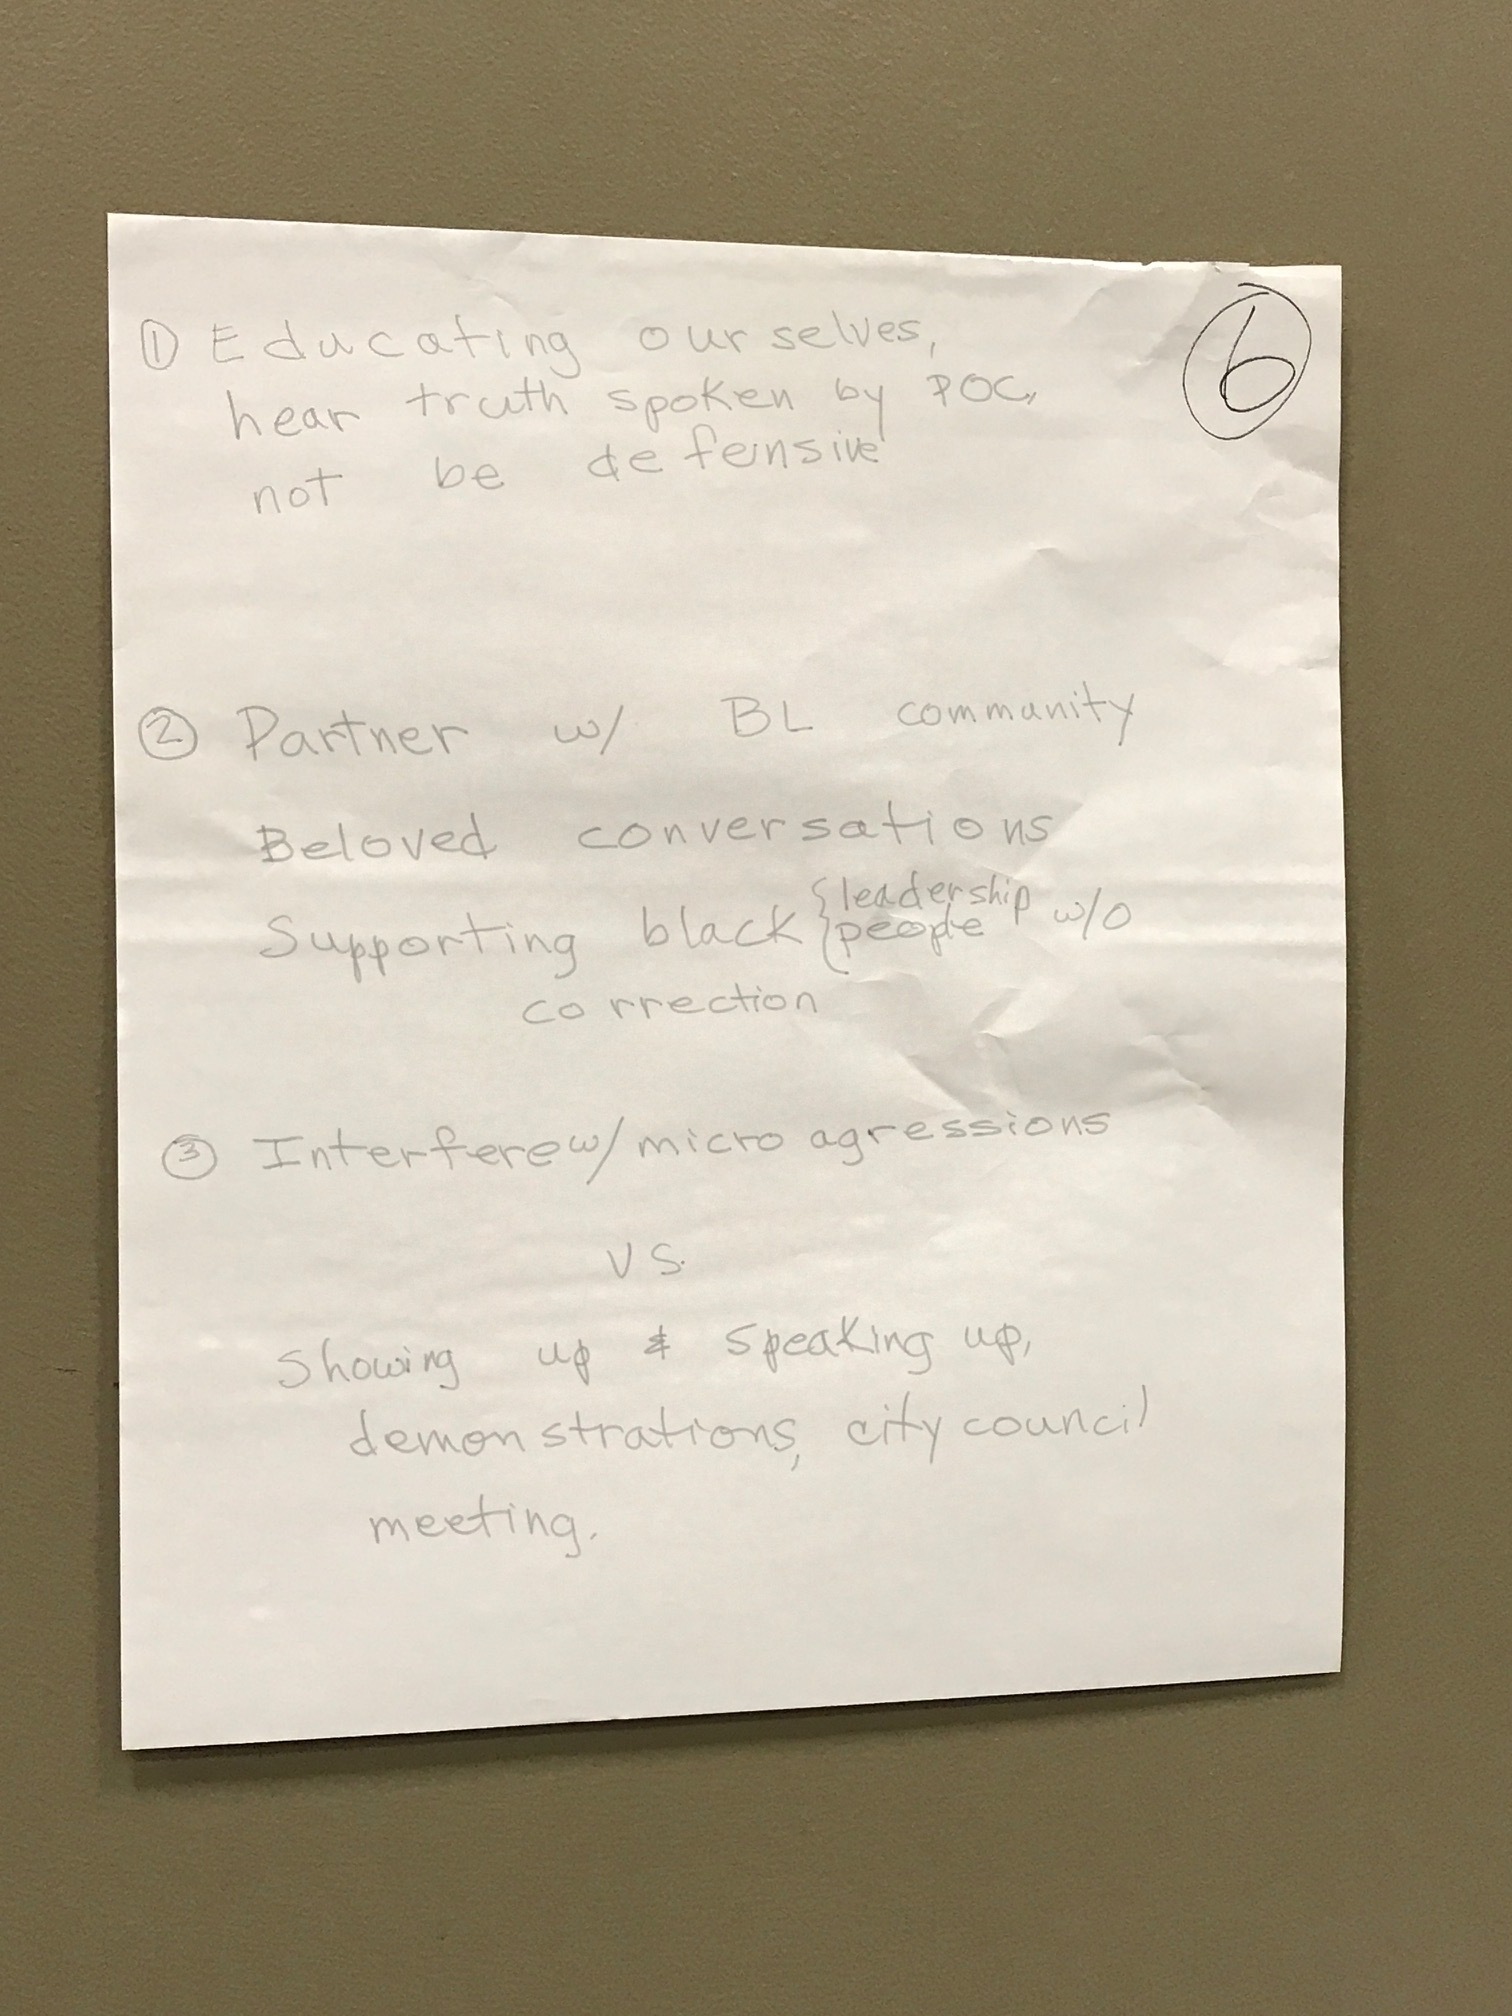 ① Educating ourselves,
hear truth spoken by POC,
not be defensive
6
② Partner w/ BL community
Beloved conversations
Supporting black { leadership
people w/o
correction
③ Interfere w/ micro agressions
vs.
Showing up & speaking up,
demonstrations, city council
meeting.